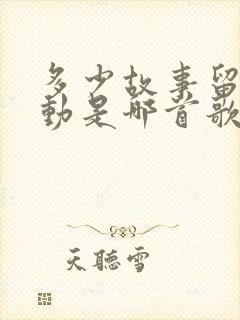 多少故事留
動是哪首歌
天聽雪